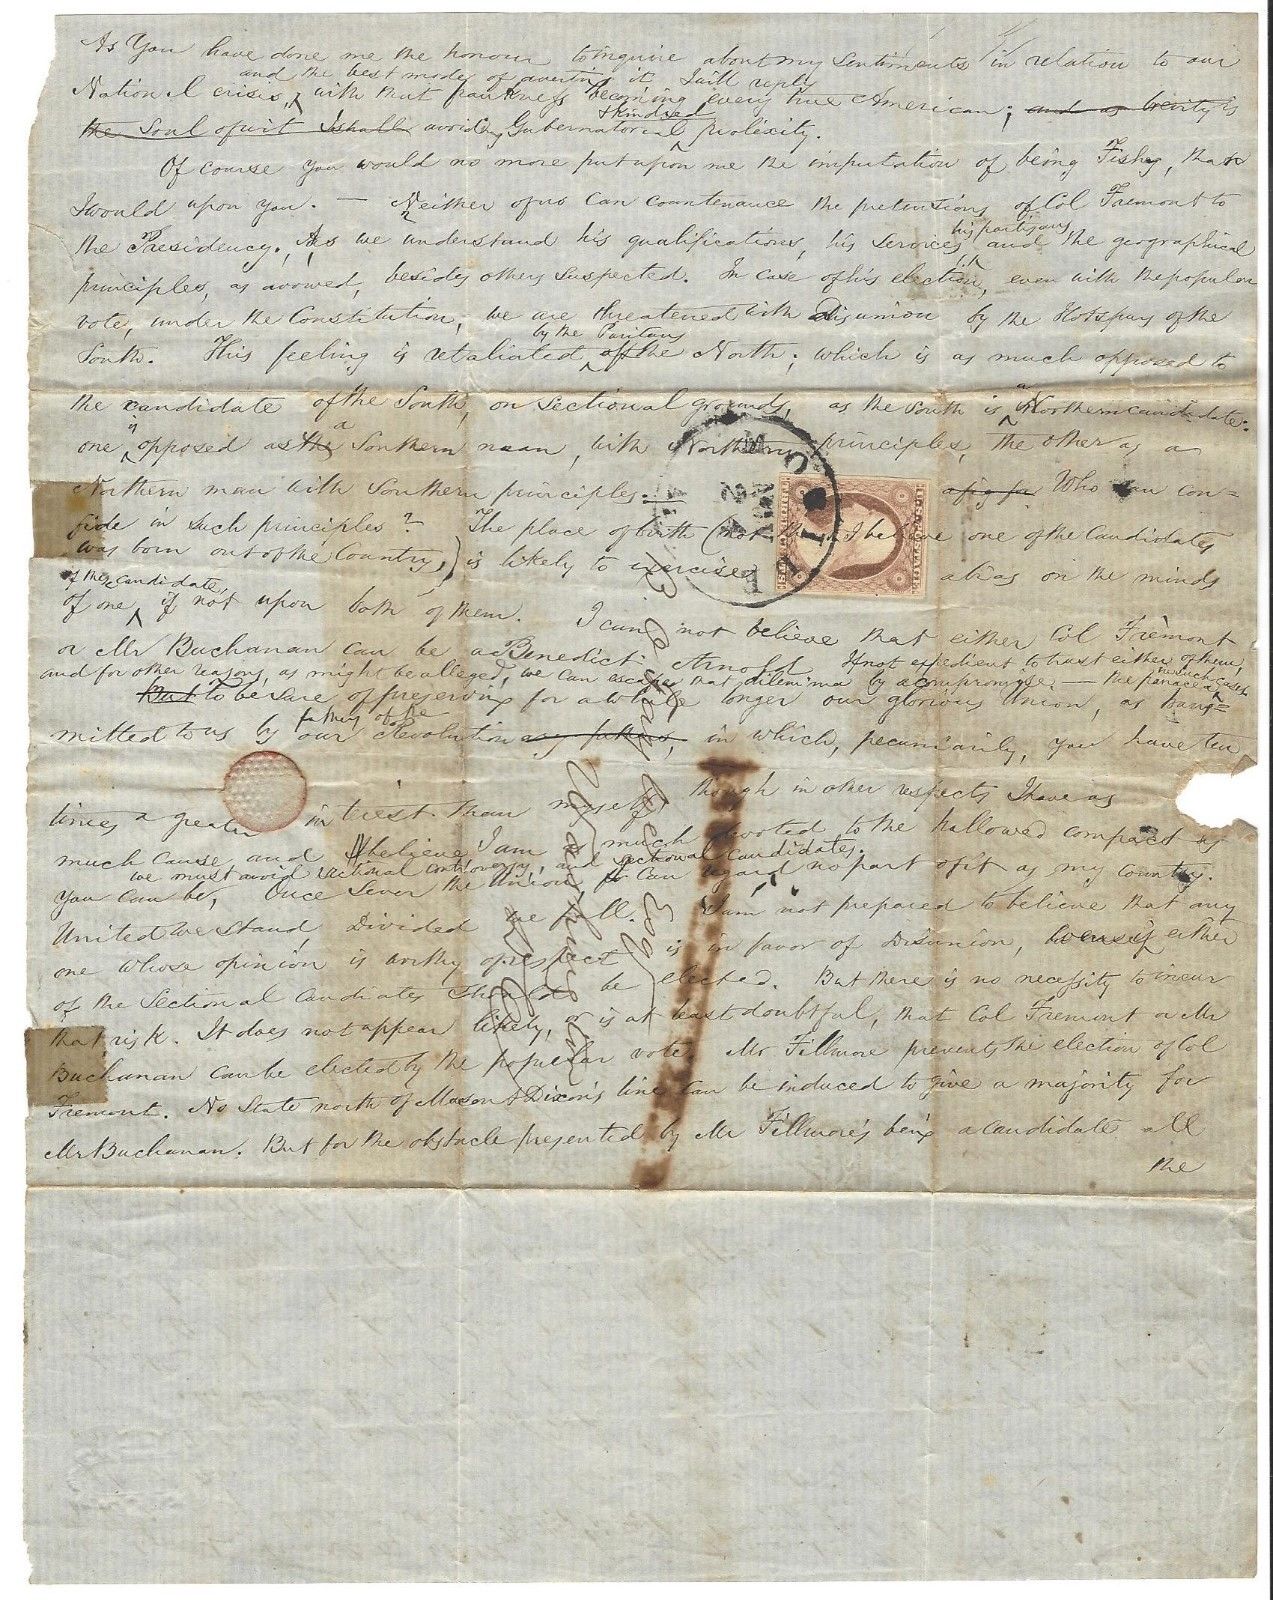 As You have done me the honour to inquire about my Sentiments in relation to our
and the best modes of averting it I will reply
National crisis, with that frankness becoming every true American; and as brevity is
& kindred
the Soul of wit I shall avoid Gubernatorial prolixity.
Of course you would no more put upon me the imputation of being Fishy, than
I would upon you. — Neither of us can countenance the pretensions of Col Fremont to
his partisans,
the Presidency, As we understand his qualifications, his services, and the geographical
principles, as avowed, besides others suspected. In case of his election, even with the popular
vote, under the Constitution, we are threatened with Disunion by the Hotspurs of the
by the Puritans
South. This feeling is retaliated of the North; which is as much opposed to
the candidate of the South, on Sectional grounds, as the South is a Northern candidate:
one is opposed as a Southern man, with Northern principles, the other as a
Northern man with Southern principles. Who can con=
fide in such principles? The place of birth (not that I believe one of the Candidates
was born out of the Country,) is likely to exercise a bias on the minds
of the candidates
of one, if not upon both of them. I can not believe that either Col Fremont
or Mr Buchanan can be a Benedict Arnold. If not expedient to trust either of them,
and for other reasons, as might be alleged, we can escape that dilemma by a compromise. — the panacea in such cases
But to be sure of preserving for a while longer our glorious Union, as trans=
fathers of the
mitted to us by our Revolution in which, pecuniarily, you have ten
times a greater interest than myself though in other respects I have as
much cause, and I believe I am as much devoted to the hallowed compact as
we must avoid sectional controversy, and sectional candidates.
you can be, Once sever the Union I can regard no part of it as my Country.
United we stand, Divided we fall. I am not prepared to believe that any
one whose opinion is worthy of respect is in favor of Disunion, even if either
of the Sectional Candidates should be elected. But there is no necessity to incur
that risk. It does not appear likely, or is at least doubtful, that Col Fremont or Mr
Buchanan can be elected by the popular vote. Mr Fillmore prevents the election of Col
Fremont. No State north of Mason & Dixon's line can be induced to give a majority for
Mr Buchanan. But for the obstacle presented by Mr Fillmore's being a candidate all
the
Esq
Washington
D.C.